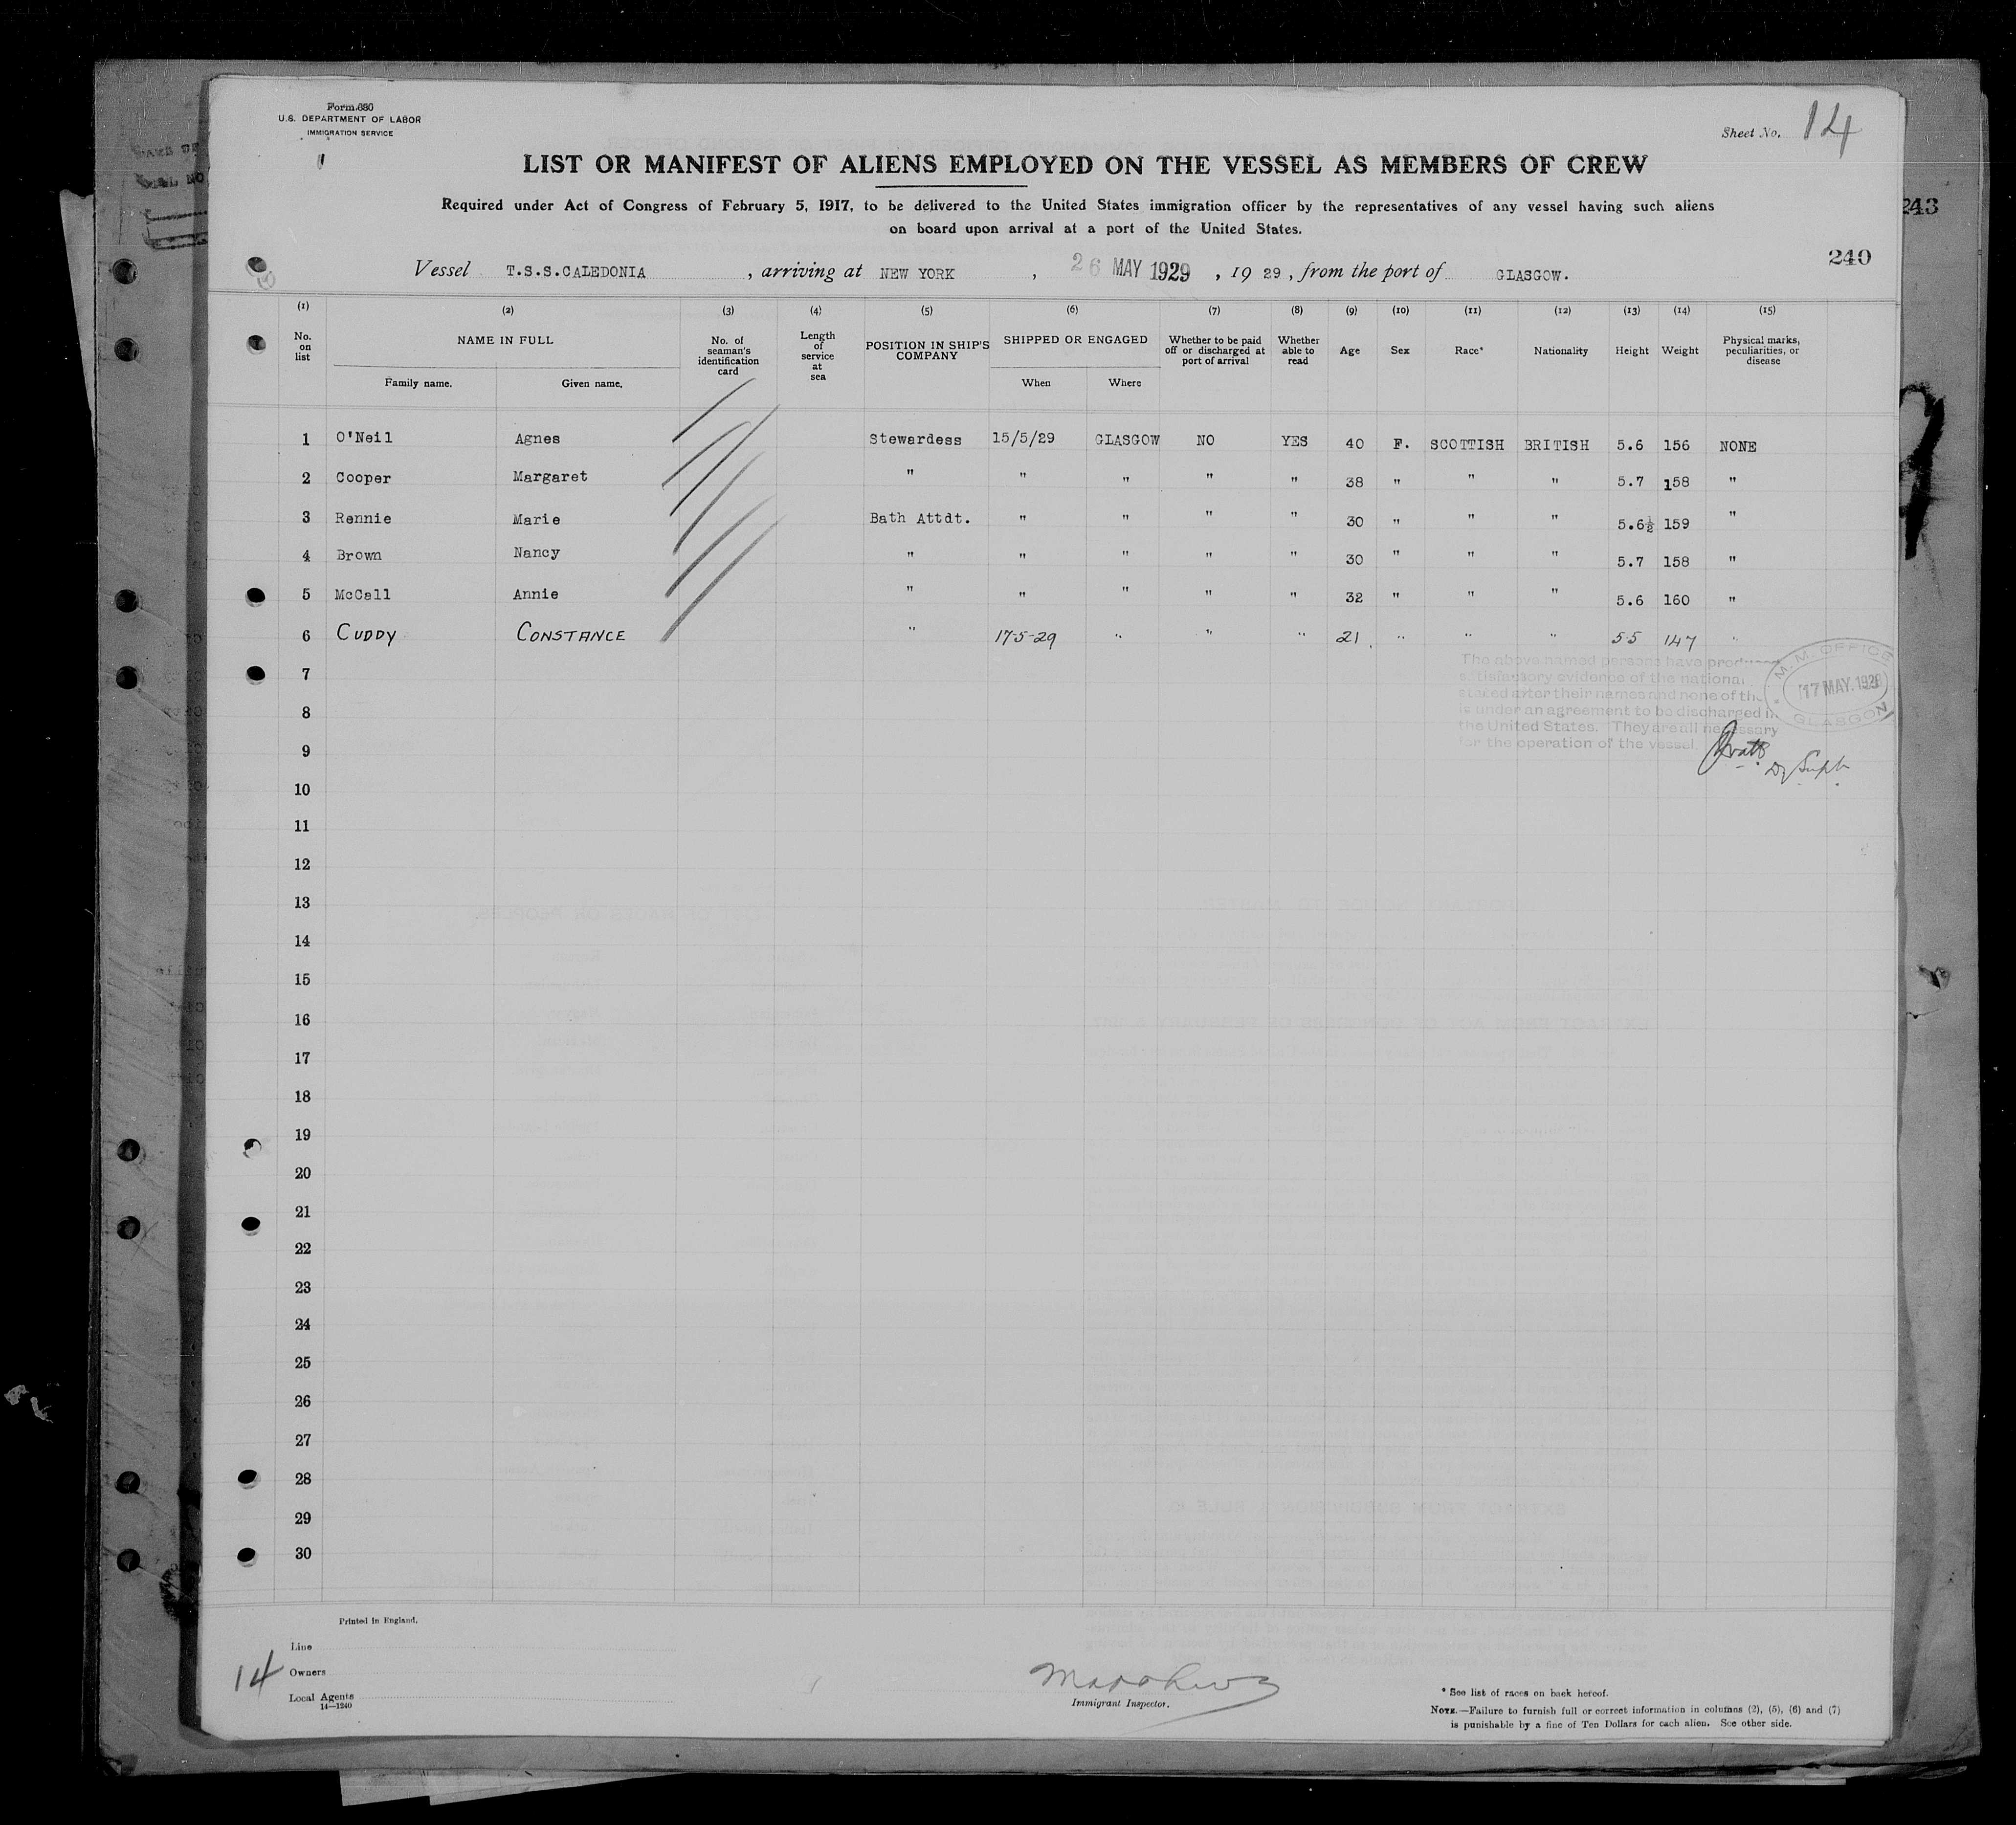 Form 680
U.S. DEPARTMENT OF LABOR
IMMIGRATION SERVICE
Sheet No. 14
LIST OR MANIFEST OF ALIENS EMPLOYED ON THE VESSEL AS MEMBERS OF CREW
Required under Act of Congress of February 5, 1917, to be delivered to the United States immigration officer by the representatives of any vessel having such aliens
on board upon arrival at a port of the United States.
243
240
Vessel T.S.S.CALEDONIA , arriving at NEW YORK , 26 MAY 1929 , 19 29 , from the port of GLASGOW.
(1) (2) (3) (4) (5) (6) (7) (8) (9) (10) (11) (12) (13) (14) (15)
No. on list NAME IN FULL No. of seaman's identification card Length of service at sea POSITION IN SHIP'S COMPANY SHIPPED OR ENGAGED Whether to be paid off or discharged at port of arrival Whether able to read Age Sex Race* Nationality Height Weight Physical marks, peculiarities, or disease
Family name. Given name. When Where
1 O'Neil Agnes Stewardess 15/5/29 GLASGOW NO YES 40 F. SCOTTISH BRITISH 5.6 156 NONE
2 Cooper Margaret " " " " " 38 " " " 5.7 158 "
3 Rennie Marie Bath Attdt. " " " " 30 " " " 5.6½ 159 "
4 Brown Nancy " " " " " 30 " " " 5.7 158 "
5 McCall Annie " " " " " 32 " " " 5.6 160 "
6 CUDDY CONSTANCE " 17-5-29 " " " 21 " " " 5.5 147 "
The above named persons have produced
satisfactory evidence of the national
stated after their names and none of the
is under an agreement to be discharged in
the United States. They are all necessary
for the operation of the vessel.
M.M. OFFICE
17 MAY. 1929
GLASGOW
Dy Supt
7
8
9
10
11
12
13
14
15
16
17
18
19
20
21
22
23
24
25
26
27
28
29
30
Printed in England.
Line
Owners
Local Agents
14—1240
14
Immigrant Inspector.
* See list of races on back hereof.
NOTE.—Failure to furnish full or correct information in columns (2), (5), (6) and (7)
is punishable by a fine of Ten Dollars for each alien. See other side.